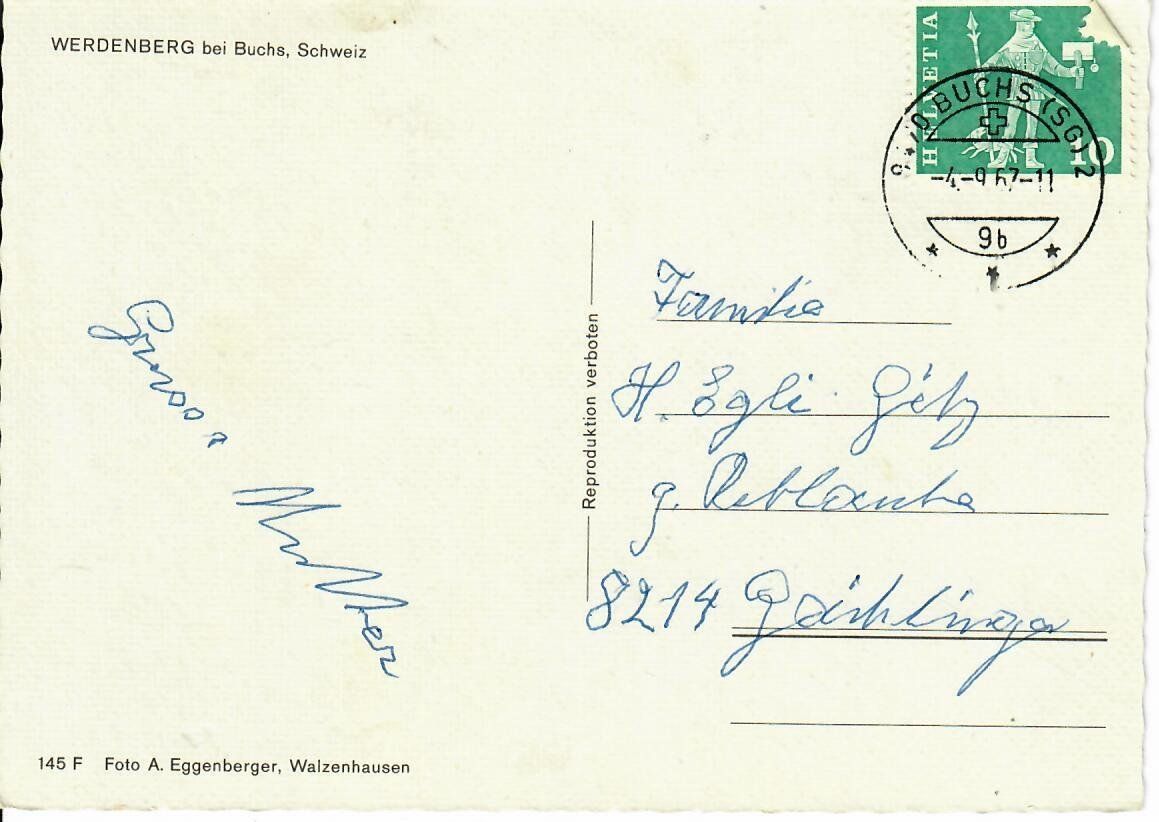 WERDENBERG bei Buchs, Schweiz
HELVETIA
10
BUCHS (SG) 2
-4.-9.67-11
9b
Grüsse
Mutter
Reproduktion verboten
Familie
H. Egli-Götz
z. Reblaube
8214 Gächlingen
145 F Foto A. Eggenberger, Walzenhausen